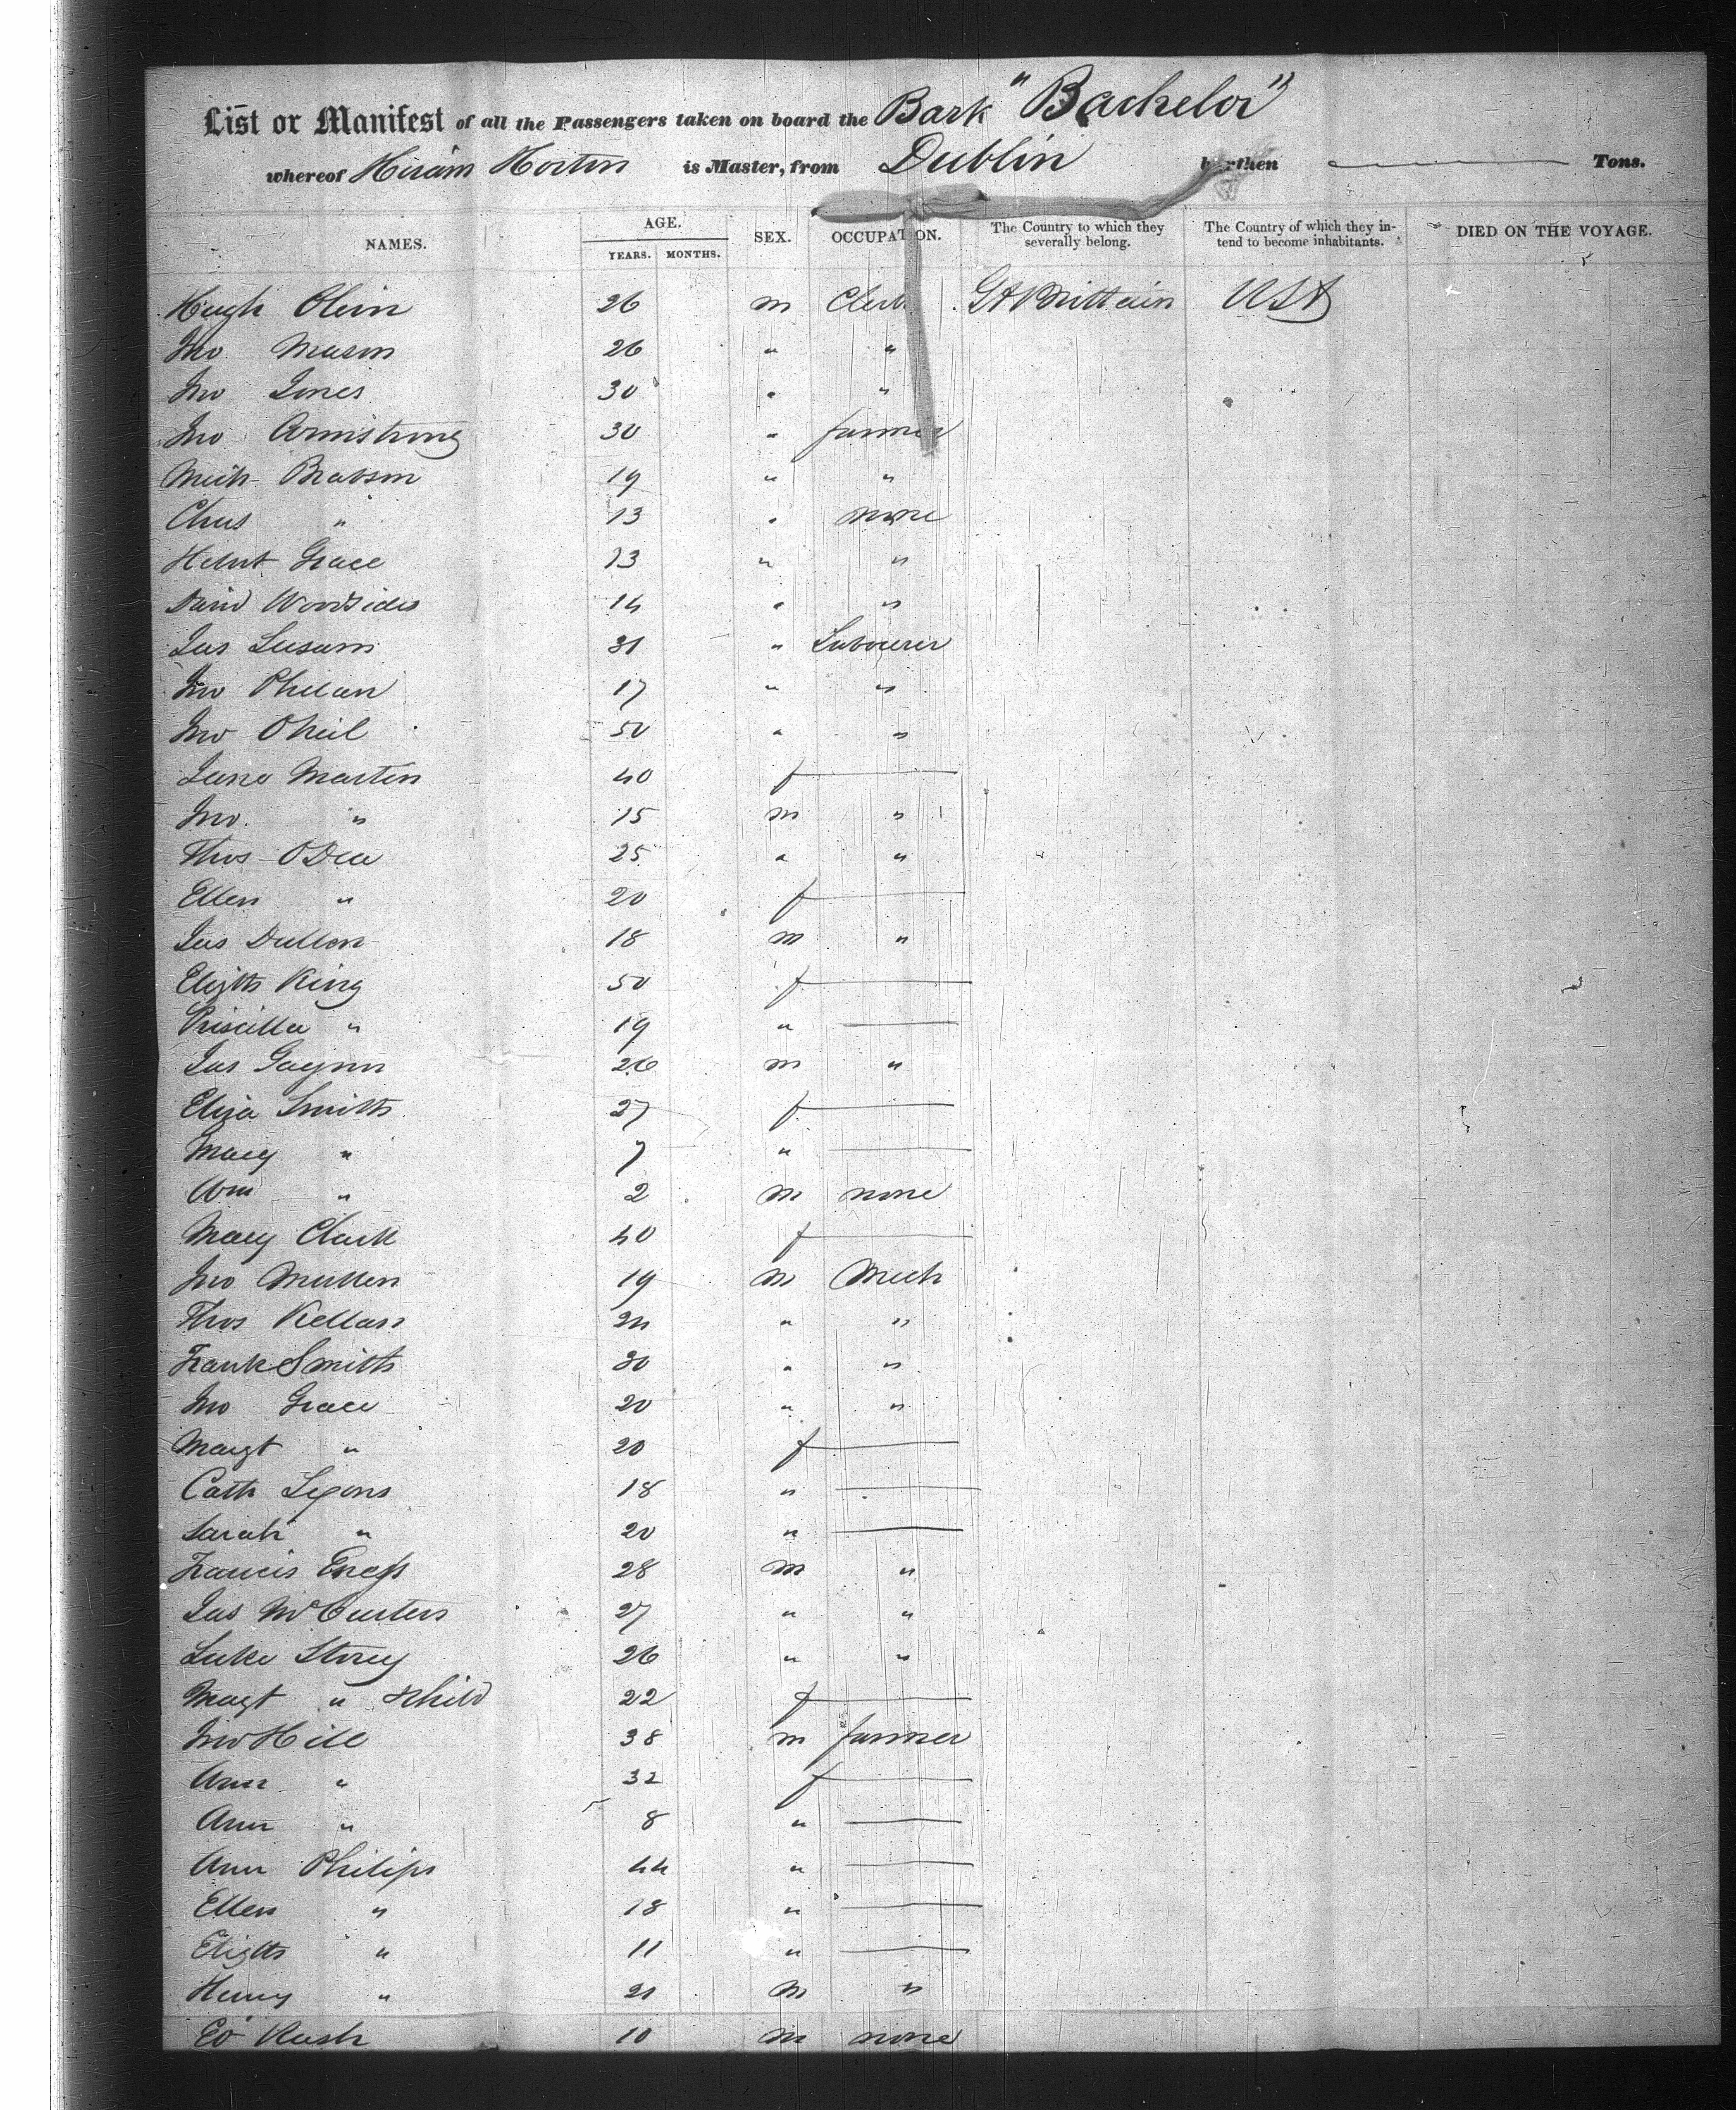 List or Manifest of all the Passengers taken on board the Bark "Bachelor"
whereof Hiram Horton is Master, from Dublin burthen Tons.
NAMES. AGE. YEARS. MONTHS. SEX. OCCUPATION. The Country to which they severally belong. The Country of which they intend to become inhabitants. DIED ON THE VOYAGE.
Hugh 26 m Clerk Gt Brittain USA
Jno Mason 26 " "
Jno Jones 30 " "
Jno Armstrong 30 " farmer
Mich Brabson 19 " "
Chas " 13 " none
Grace 13 " "
David Woodsides 14 " "
Jas 31 " Labourer
Jno Phelan 17 " "
Jno ONeil 50 " "
Jane Martin 40 f
Jno. " 15 m "
Thos ODea 25 " "
Ellen " 20 f
Jas Dillon 18 m "
Elizth King 50 f
Priscilla " 19 "
Jas 26 m "
Eliza Smith 27 f
Mary " 7 "
Wm " 2 m none
Mary Clark 40 f
Jno Mullen 19 m Mech
Thos Kellan 24 " "
Frank Smith 30 " "
Jno Grace 20 " "
Margt " 20 f
Cath Lyons 18 "
Sarah " 20 "
Francis 28 m "
Jas 27 " "
Luke Storey 26 " "
Magt " & child 22 f
Jno Hill 38 m farmer
Ann " 32 f
Ann " 8 "
Ann Philips 44 "
Ellen " 18 "
Elizth " 11 "
Henry " 21 m "
Ed Rush 10 m none